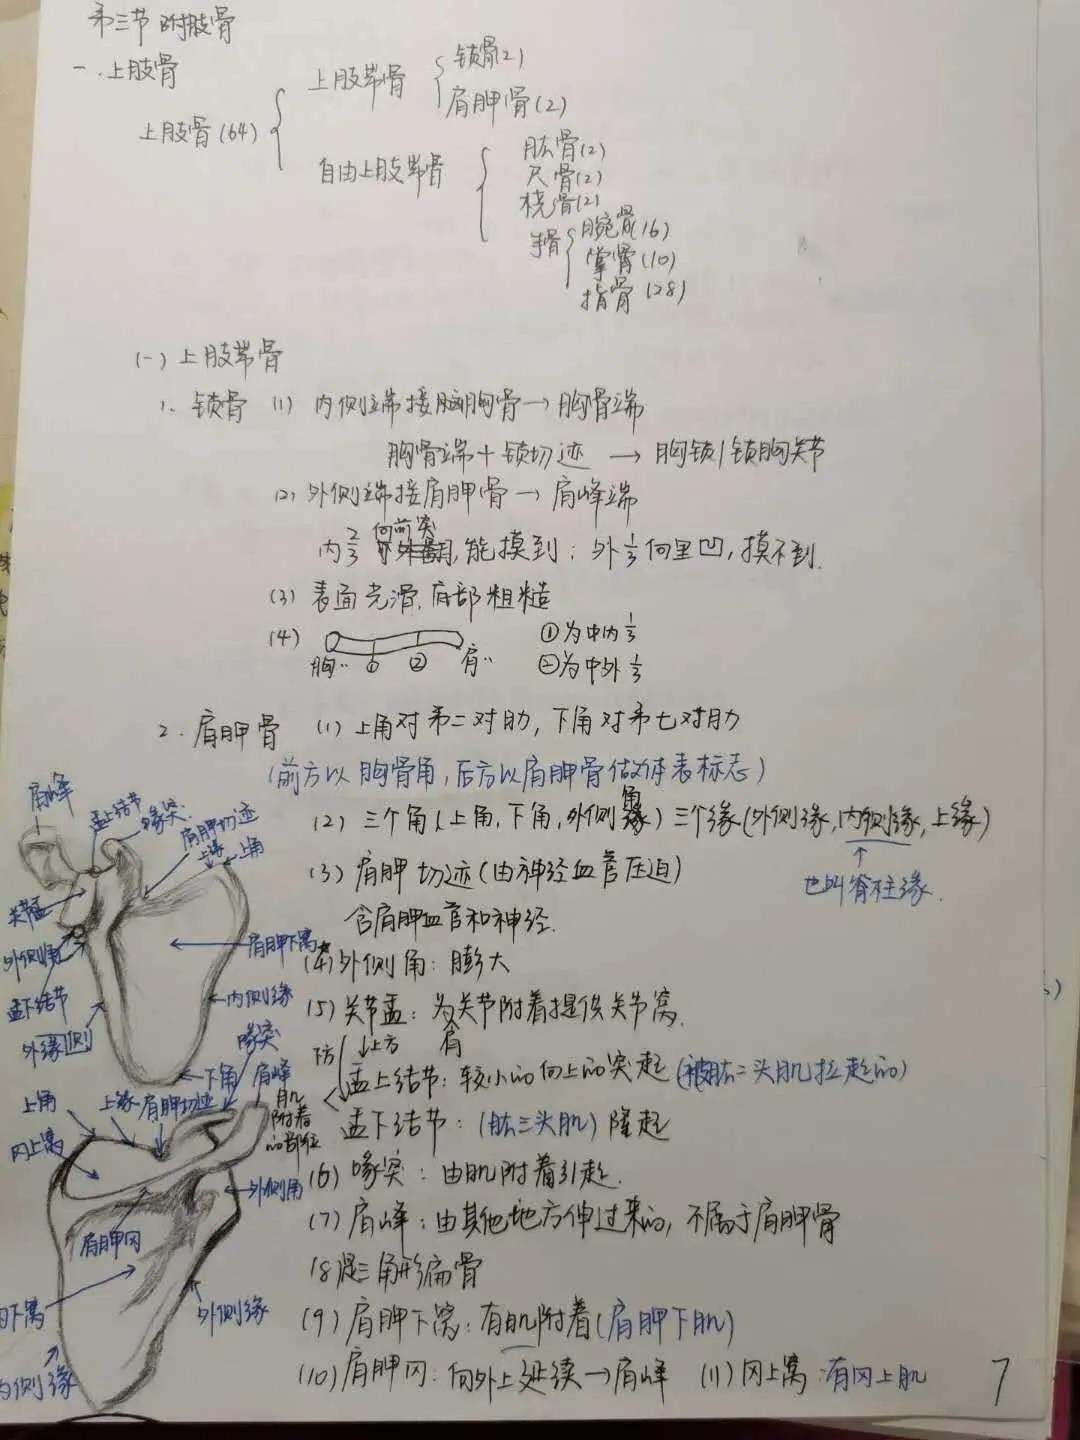 第三节 附肢骨
一. 上肢骨
上肢骨(64)
上肢带骨
锁骨(2)
肩胛骨(2)
自由上肢带骨
肱骨(2)
尺骨(2)
桡骨(2)
手骨
腕骨(16)
掌骨(10)
指骨(28)
(一) 上肢带骨
1. 锁骨 (1) 内侧端接胸骨→胸骨端
胸骨端+锁切迹 → 胸锁/锁胸关节
(2) 外侧端接肩胛骨→肩峰端
内2/3向前突,能摸到;外1/3向里凹,摸不到.
(3) 表面光滑,底部粗糙
(4) 胸.. ① ② 肩.. ①为中内1/3
②为中外1/3
2. 肩胛骨 (1) 上角对第二对肋,下角对第七对肋
(前方以胸骨角,后方以肩胛骨做体表标志)
(2) 三个角(上角,下角,外侧角) 三个缘(外侧缘,内侧缘,上缘)
也叫脊柱缘.
(3) 肩胛切迹(由神经血管压迫)
含肩胛血管和神经.
(4) 外侧角: 膨大
(5) 关节盂: 为关节附着提供关节窝.
下方 上方 肩
盂上结节: 较小的向上的突起(被肱二头肌拉起的)
盂下结节: (肱三头肌) 隆起
肌附着的部位
(6) 喙突: 由肌附着引起.
(7) 肩峰: 由其他地方伸过来的,不属于肩胛骨
(8) 是三角形扁骨
(9) 肩胛下窝: 有肌附着(肩胛下肌)
(10) 肩胛冈: 向外上延续→肩峰 (11) 冈上窝:有冈上肌
7
肩峰
盂上结节
喙突
肩胛切迹
上缘
上角
关节盂
外侧角
盂下结节
外缘侧
肩胛下窝
内侧缘
下角
上角
上缘
肩胛切迹
喙突
肩峰
冈上窝
外侧角
肩胛冈
冈下窝
外侧缘
内侧缘